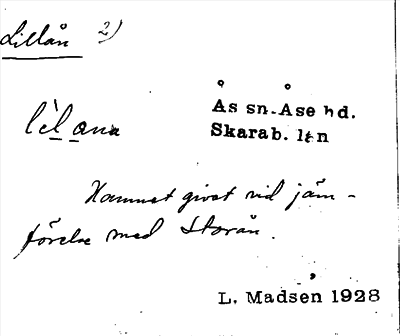 Lillån 2)
Ås sn. Åse hd.
lìlana
Skarab. län
Namnet givet vid jäm-
förelse med Storån.
L. Madsén 1928